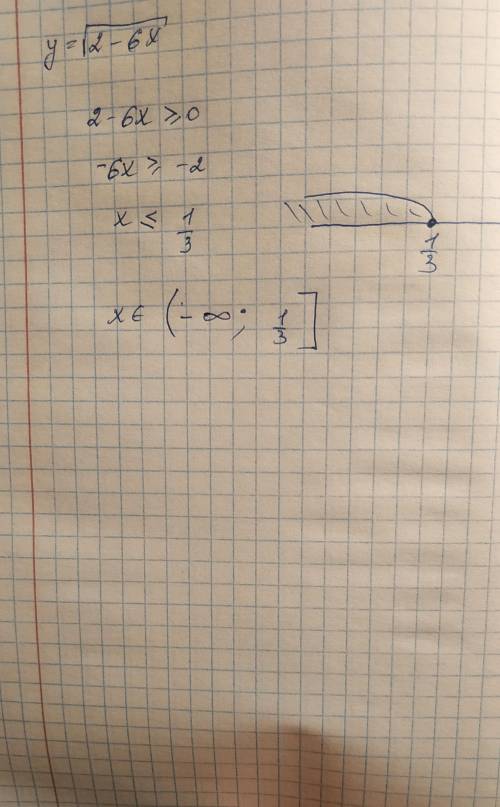 y = √2 - 6x
2 - 6x ≥ 0
-6x ≥ -2
x ≤ 1/3
1/3
x ∈ (-∞; 1/3]